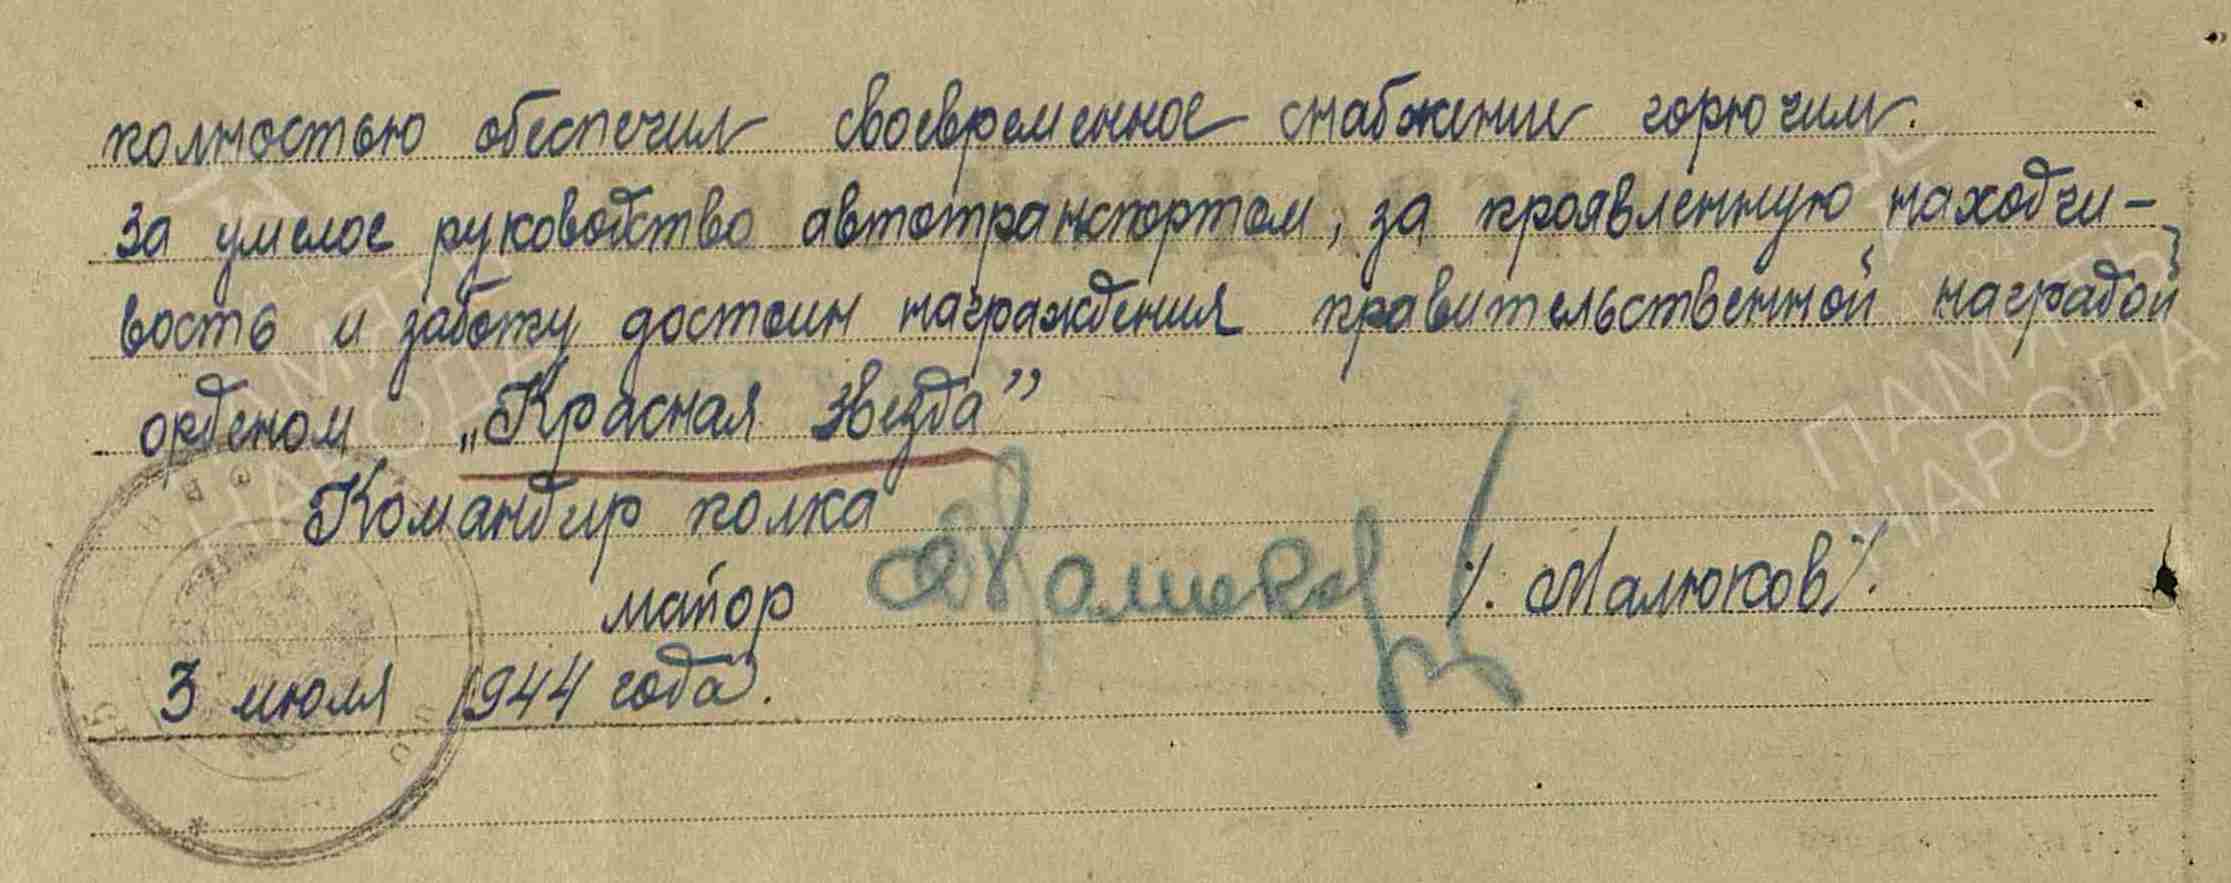 полностью обеспечил своевременное снабжение горючим.
За умелое руководство автотранспортом, за проявленную находчи-
вость и заботу достоин награждения правительственной наградой
орденом „Красная звезда”
Командир полка
майор /. Малюков/.
3 июля 1944 года.
ПАМЯТЬ
НАРОДА
ПАМЯТЬ
НАРОДА